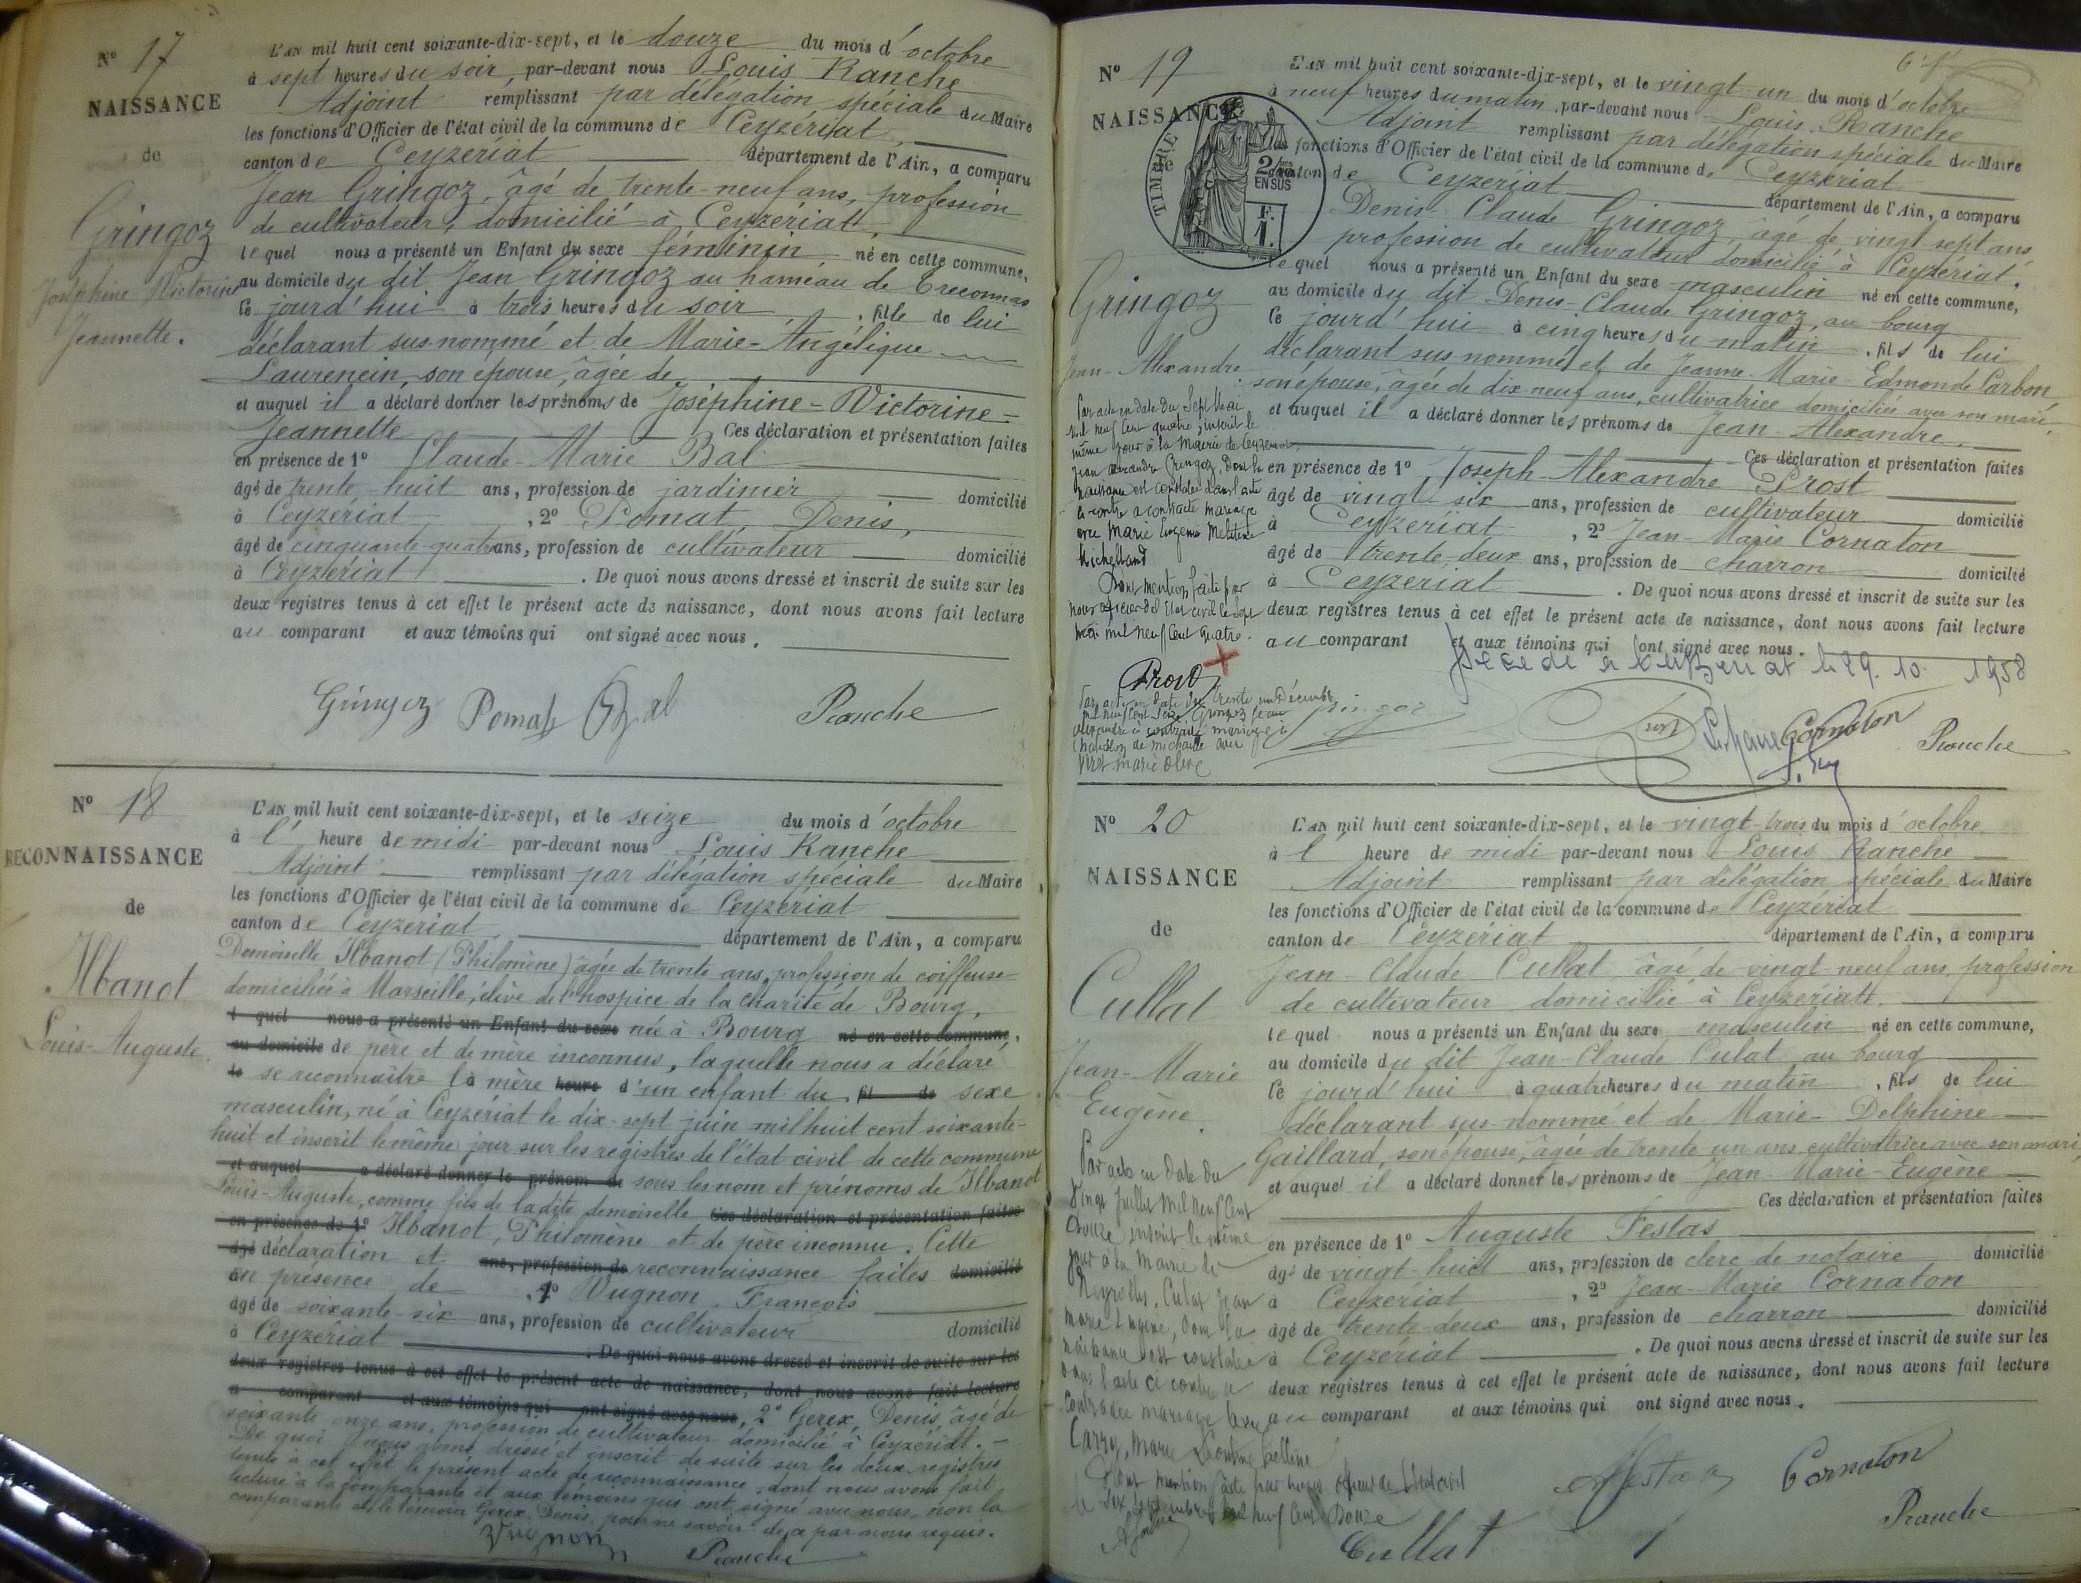 N° 17
NAISSANCE
de
Gringoz
Joséphine Victorine
Jeannette.
L'AN mil huit cent soixante-dix-sept, et le douze du mois d'octobre
à sept heures du soir, par-devant nous Louis Ranche
Adjoint remplissant par délégation spéciale du Maire
les fonctions d'Officier de l'état civil de la commune de Ceyzériat,
canton de Ceyzériat département de l'Ain, a comparu
Jean Gringoz, âgé de trente-neuf ans, profession
de cultivateur, domicilié à Ceyzériat,
le quel nous a présenté un Enfant du sexe féminin né en cette commune,
au domicile du dit Jean Gringoz au hameau de Treconnas
ce jourd'hui à trois heures du soir, fille de lui
déclarant sus-nommé et de Marie-Angélique
Laurencin, son épouse, âgée de
et auquel il a déclaré donner les prénoms de Joséphine-Victorine-
Jeannette Ces déclaration et présentation faites
en présence de 1° Claude-Marie Bal
âgé de trente-huit ans, profession de jardinier domicilié
à Ceyzériat, 2° Pomat, Denis,
âgé de cinquante-quatre ans, profession de cultivateur domicilié
à Ceyzériat. De quoi nous avons dressé et inscrit de suite sur les
deux registres tenus à cet effet le présent acte de naissance, dont nous avons fait lecture
au comparant et aux témoins qui ont signé avec nous.
Gringoz Pomat Bal Ranche
N° 18
RECONNAISSANCE
de
Ilbanot
Louis-Auguste.
L'AN mil huit cent soixante-dix-sept, et le seize du mois d'octobre
à l' heure de midi par-devant nous Louis Ranche
Adjoint remplissant par délégation spéciale du Maire
les fonctions d'Officier de l'état civil de la commune de Ceyzériat
canton de Ceyzériat département de l'Ain, a comparu
Demoiselle Ilbanot (Philomène) âgée de trente ans, profession de coiffeuse
domiciliée à Marseille, élève de l'hospice de la charité de Bourg,
l quel nous a présenté un Enfant du sexe née à Bourg né en cette commune,
au domicile de père et de mère inconnus, laquelle nous a déclaré
le se reconnaître la mère heure d'un enfant du fil de sexe
masculin, né à Ceyzériat le dix-sept juin mil huit cent soixante-
huit et inscrit le même jour sur les registres de l'état civil de cette commune
et auquel a déclaré donner le prénom de sous les nom et prénoms de Ilbanot
Louis-Auguste, comme fils de la dite demoiselle Ces déclaration et présentation faites
en présence de 1° Ilbanot, Philomène et de père inconnu. Cette
âgé déclaration et ans, profession de reconnaissance faites domicilié
en présence de 1° Vugnon, François
âgé de soixante-six ans, profession de cultivateur domicilié
à Ceyzériat. De quoi nous avons dressé et inscrit de suite sur les
deux registres tenus à cet effet le présent acte de naissance, dont nous avons fait lecture
a comparant et aux témoins qui ont signé avec nous, 2° Gerex, Denis, âgé de
soixante onze ans, profession de cultivateur domicilié à Ceyzériat. -
De quoi nous avons dressé et inscrit de suite sur les deux registres
tenus à cet effet le présent acte de reconnaissance, dont nous avons fait
lecture à la comparante et aux témoins qui ont signé avec nous, non la
comparante et le témoin Gerex, Denis, pour ne savoir de ce par nous requis.
Vugnon Ranche
N° 19
NAISSANCE
de
TIMBRE
2/10es
EN SUS
F.
1.
Gringoz
Jean-Alexandre.
Par acte en date du Sept Mai
mil neuf cent quatre, inscrit le
même jour à la Mairie de Ceyzériat
Jean Alexandre Gringoz, dont la
naissance est constatée dans l'acte
ci-contre a contracté mariage
avec Marie Eugénie
Dont mention faite par
nous officier de l'état civil le sept
mai mil neuf cent quatre.
Prost
Par acte en date du trente un Décembre
mil neuf cent seize Gringoz Jean
Alexandre a contracté mariage à
Chatillon de Michaille avec
L'AN mil huit cent soixante-dix-sept, et le vingt-un du mois d'octobre
à neuf heures du matin, par-devant nous Louis Ranche
Adjoint remplissant par délégation spéciale du Maire
les fonctions d'Officier de l'état civil de la commune de Ceyzériat
canton de Ceyzériat département de l'Ain, a comparu
Denis-Claude Gringoz, âgé de vingt sept ans,
profession de cultivateur domicilié à Ceyzériat,
le quel nous a présenté un Enfant du sexe masculin né en cette commune,
au domicile du dit Denis-Claude Gringoz, au bourg
ce jourd'hui à cinq heures du matin, fils de lui
déclarant sus nommé et de Jeanne-Marie-Edmonde Carbon,
son épouse, âgée de dix-neuf ans, cultivatrice domiciliée avec son mari,
et auquel il a déclaré donner les prénoms de Jean-Alexandre.
Ces déclaration et présentation faites
en présence de 1° Joseph-Alexandre Prost
âgé de vingt-six ans, profession de cultivateur domicilié
à Ceyzériat, 2° Jean-Marie Cornaton
âgé de trente-deux ans, profession de charron domicilié
à Ceyzériat. De quoi nous avons dressé et inscrit de suite sur les
deux registres tenus à cet effet le présent acte de naissance, dont nous avons fait lecture
au comparant et aux témoins qui ont signé avec nous.
le 29. 10. 1958
Le Maire
Gringoz Prost Cornaton Ranche
N° 20
NAISSANCE
de
Cullat
Jean-Marie
Eugène.
Par acte en date du
Vingt Juillet Mil Neuf Cent
Douze inscrit le même
jour à la Mairie de
Neyrolles, Culat Jean
Marie Eugène, dont la
naissance est constatée
dans l'acte ci contre a
contracté mariage avec
Carry, Marie
Dont mention faite par nous officier de l'état civil
mil neuf cent Douze
L'AN mil huit cent soixante-dix-sept, et le vingt-trois du mois d'octobre
à l' heure de midi par-devant nous Louis Ranche
Adjoint remplissant par délégation spéciale du Maire
les fonctions d'Officier de l'état civil de la commune de Ceyzériat
canton de Ceyzériat département de l'Ain, a comparu
Jean-Claude Cullat, âgé de vingt-neuf ans, profession
de cultivateur domicilié à Ceyzériat.
le quel nous a présenté un Enfant du sexe masculin né en cette commune,
au domicile du dit Jean-Claude Culat au bourg
ce jourd'hui à quatre heures du matin, fils de lui
déclarant sus-nommé et de Marie-Delphine
Gaillard, son épouse, âgée de trente un ans, cultivatrice avec son mari,
et auquel il a déclaré donner les prénoms de Jean-Marie-Eugène
Ces déclaration et présentation faites
en présence de 1° Auguste Festas
âgé de vingt-huit ans, profession de clerc de notaire domicilié
à Ceyzériat, 2° Jean-Marie Cornaton
âgé de trente-deux ans, profession de charron domicilié
à Ceyzériat. De quoi nous avons dressé et inscrit de suite sur les
deux registres tenus à cet effet le présent acte de naissance, dont nous avons fait lecture
au comparant et aux témoins qui ont signé avec nous.
AFestas Cornaton
Cullat Ranche